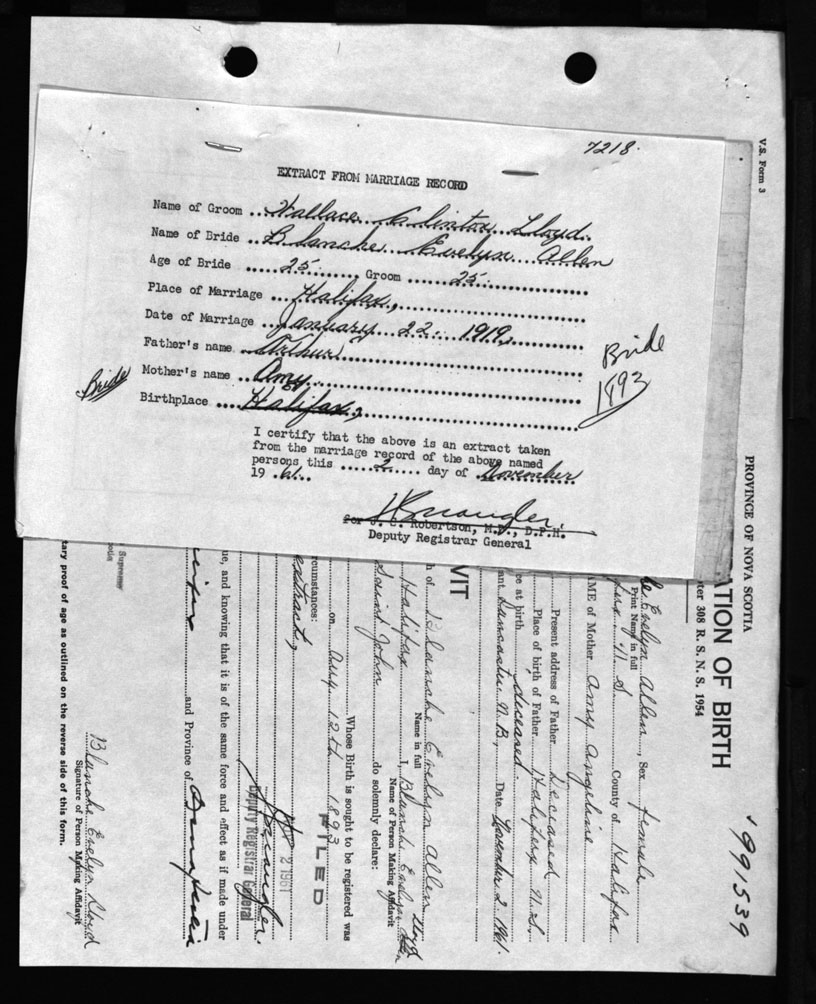 7218.
EXTRACT FROM MARRIAGE RECORD
Name of Groom Wallace Clinton Lloyd.
Name of Bride Blanche Evelyn Allen
Age of Bride 25. Groom 25.
Place of Marriage Halifax,
Date of Marriage January 22. 1919.
Father's name Arthur
Mother's name Amy.
Birthplace Halifax,
Bride
Bride
1893
I certify that the above is an extract taken
from the marriage record of the above named
persons this 2 day of November
19 61.
for J. C. Robertson, M.D., D.P.H.
Deputy Registrar General
V.S. Form 3
PROVINCE OF NOVA SCOTIA
ATION OF BIRTH
ter 308 R. S. N. S. 1954
991539
Evelyn Allen, Sex female
Print Name in full
N. S. County of Halifax
AME of Mother Amy Angeline
Present address of Father Deceased
Place of birth of Father Halifax N.S.
ce at birth deceased.
Lancaster N.B., Date November 2. 1961.
VIT
h of Blanche Evelyn Allen
Name in full
Halifax I, Blanche Evelyn Lloyd
Name of Person Making Affidavit
Saint John do solemnly declare:
Whose Birth is sought to be registered was
on Aug 12th 1893
FILED
rcumstances:
extract,
2 1961
Deputy Registrar General
ue, and knowing that it is of the same force and effect as if made under
and Province of
Supreme
Blanche Evelyn Lloyd
Signature of Person Making Affidavit
tary proof of age as outlined on the reverse side of this form.